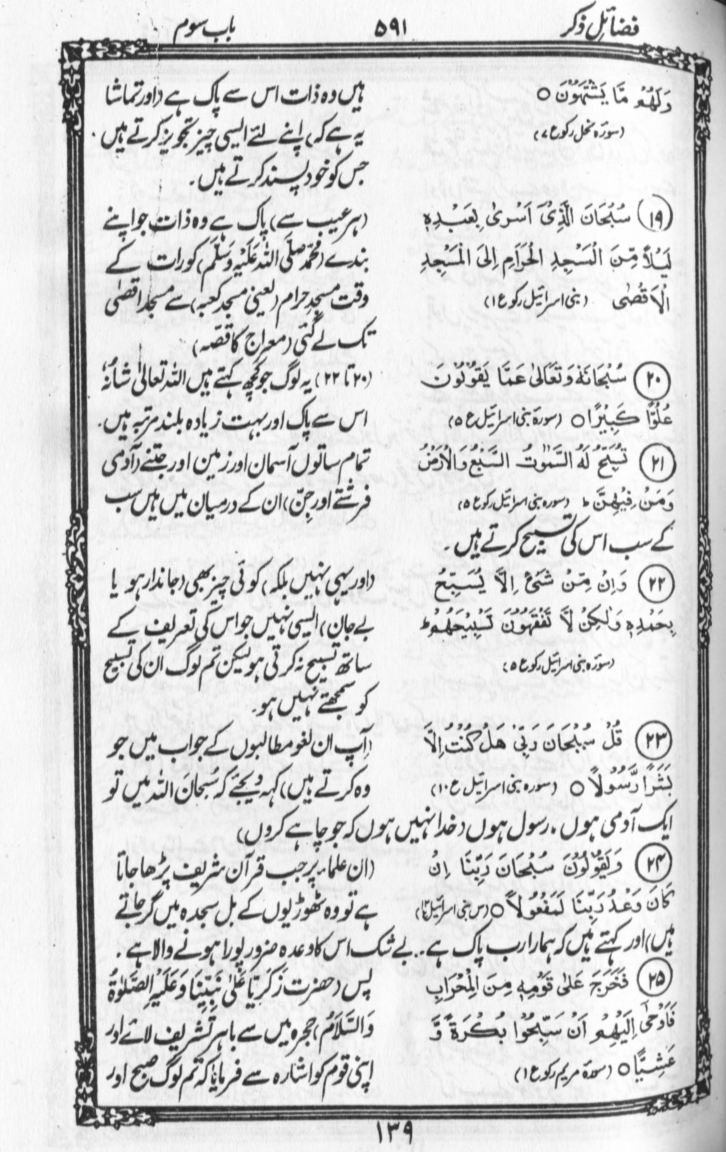 فضائل ذکر ۵۹۱ باب سوم
وَلَهُمْ مَّا يَشْتَهُوْنَ ○
(سورہ نحل رکوع ۷)
ہیں وہ ذات اس سے پاک ہے (اور تماشا
یہ ہے کہ) اپنے لئے ایسی چیز تجویز کرتے ہیں
جس کو خود پسند کرتے ہیں.
(۱۹) سُبْحَانَ الَّذِىْ اَسْرىٰ بِعَبْدِهٖ
لَيْلًا مِّنَ الْمَسْجِدِ الْحَرَامِ اِلَى الْمَسْجِدِ
الْاَقْصٰى (بنی اسرائیل رکوع ۱)
(ہر عیب سے) پاک ہے وہ ذات جو اپنے
بندے (محمد صلَّی اللہُ عَلَیْہِ وَسَلَّم) کو رات کے
وقت مسجد حرام (یعنی مسجد کعبہ) سے مسجد اقصٰی
تک لے گئی (معراج کا قصّہ)
(۲۰) سُبْحَانَهٗ وَتَعَالىٰ عَمَّا يَقُوْلُوْنَ
عُلُوًّا كَبِيْرًا ○ (سورۃ بنی اسرائیل ع ۵)
(۲۰ تا ۲۲) یہ لوگ جو کچھ کہتے ہیں اللہ تعالیٰ شانُہٗ
اس سے پاک اور بہت زیادہ بلند مرتبہ ہیں.
(۲۱) تُسَبِّحُ لَهُ السَّمٰوٰتُ السَّبْعُ وَالْاَرْضُ
وَمَنْ فِيْهِنَّ ط (سورہ بنی اسرائیل رکوع ۵)
تمام ساتوں آسمان اور زمین اور جتنے (آدمی
فرشتے اور جن) ان کے درمیان میں ہیں سب
کے سب اس کی تسبیح کرتے ہیں.
(۲۲) وَاِن مِّنْ شَىْءٍ اِلَّا يُسَبِّحُ
بِحَمْدِهٖ وَلٰكِنْ لَّا تَفْقَهُوْنَ تَسْبِيْحَهُمْ ط
(سورہ بنی اسرائیل رکوع ۵)
(اور یہی نہیں بلکہ) کوئی چیز بھی (جاندار ہو یا
بے جان) ایسی نہیں جو اس کی تعریف کے
ساتھ تسبیح نہ کرتی ہو لیکن تم لوگ ان کی تسبیح
کو سمجھتے نہیں ہو.
(۲۳) قُلْ سُبْحَانَ رَبِّىْ هَلْ كُنْتُ اِلَّا
بَشَرًا رَّسُوْلًا ○ (سورہ بنی اسرائیل ع ۱۰)
(آپ ان لغو مطالبوں کے جواب میں جو
وہ کرتے ہیں) کہہ دیجئے کہ سُبحانَ اللہ میں تو
ایک آدمی ہوں، رسول ہوں (خدا نہیں ہوں کہ جو چاہے کروں)
(۲۴) وَيَقُوْلُوْنَ سُبْحَانَ رَبِّنَا اِنْ
كَانَ وَعْدُ رَبِّنَا لَمَفْعُوْلًا ○ (س بنی اسرائیل)
(ان علماء پر جب قرآن شریف پڑھا جاتا
ہے تو وہ ٹھوڑیوں کے بل سجدہ میں گر جاتے
ہیں) اور کہتے ہیں کہ ہمارا رب پاک ہے.. بے شک اس کا وعدہ ضرور پورا ہونے والا ہے.
(۲۵) فَخَرَجَ عَلىٰ قَوْمِهٖ مِنَ الْمِحْرَابِ
فَاَوْحىٰ اِلَيْهِمْ اَنْ سَبِّحُوْا بُكْرَةً وَّ
عَشِيًّا ○ (سورۃ مریم رکوع ۱)
پس (حضرت زکریا عَلٰی نَبِیِّنَا وَعَلَیْہِ الصَّلٰوۃُ
وَالسَّلَامُ) حجرہ میں سے باہر تشریف لائے اور
اپنی قوم کو اشارہ سے فرمایا کہ تم لوگ صبح اور
۱۳۹